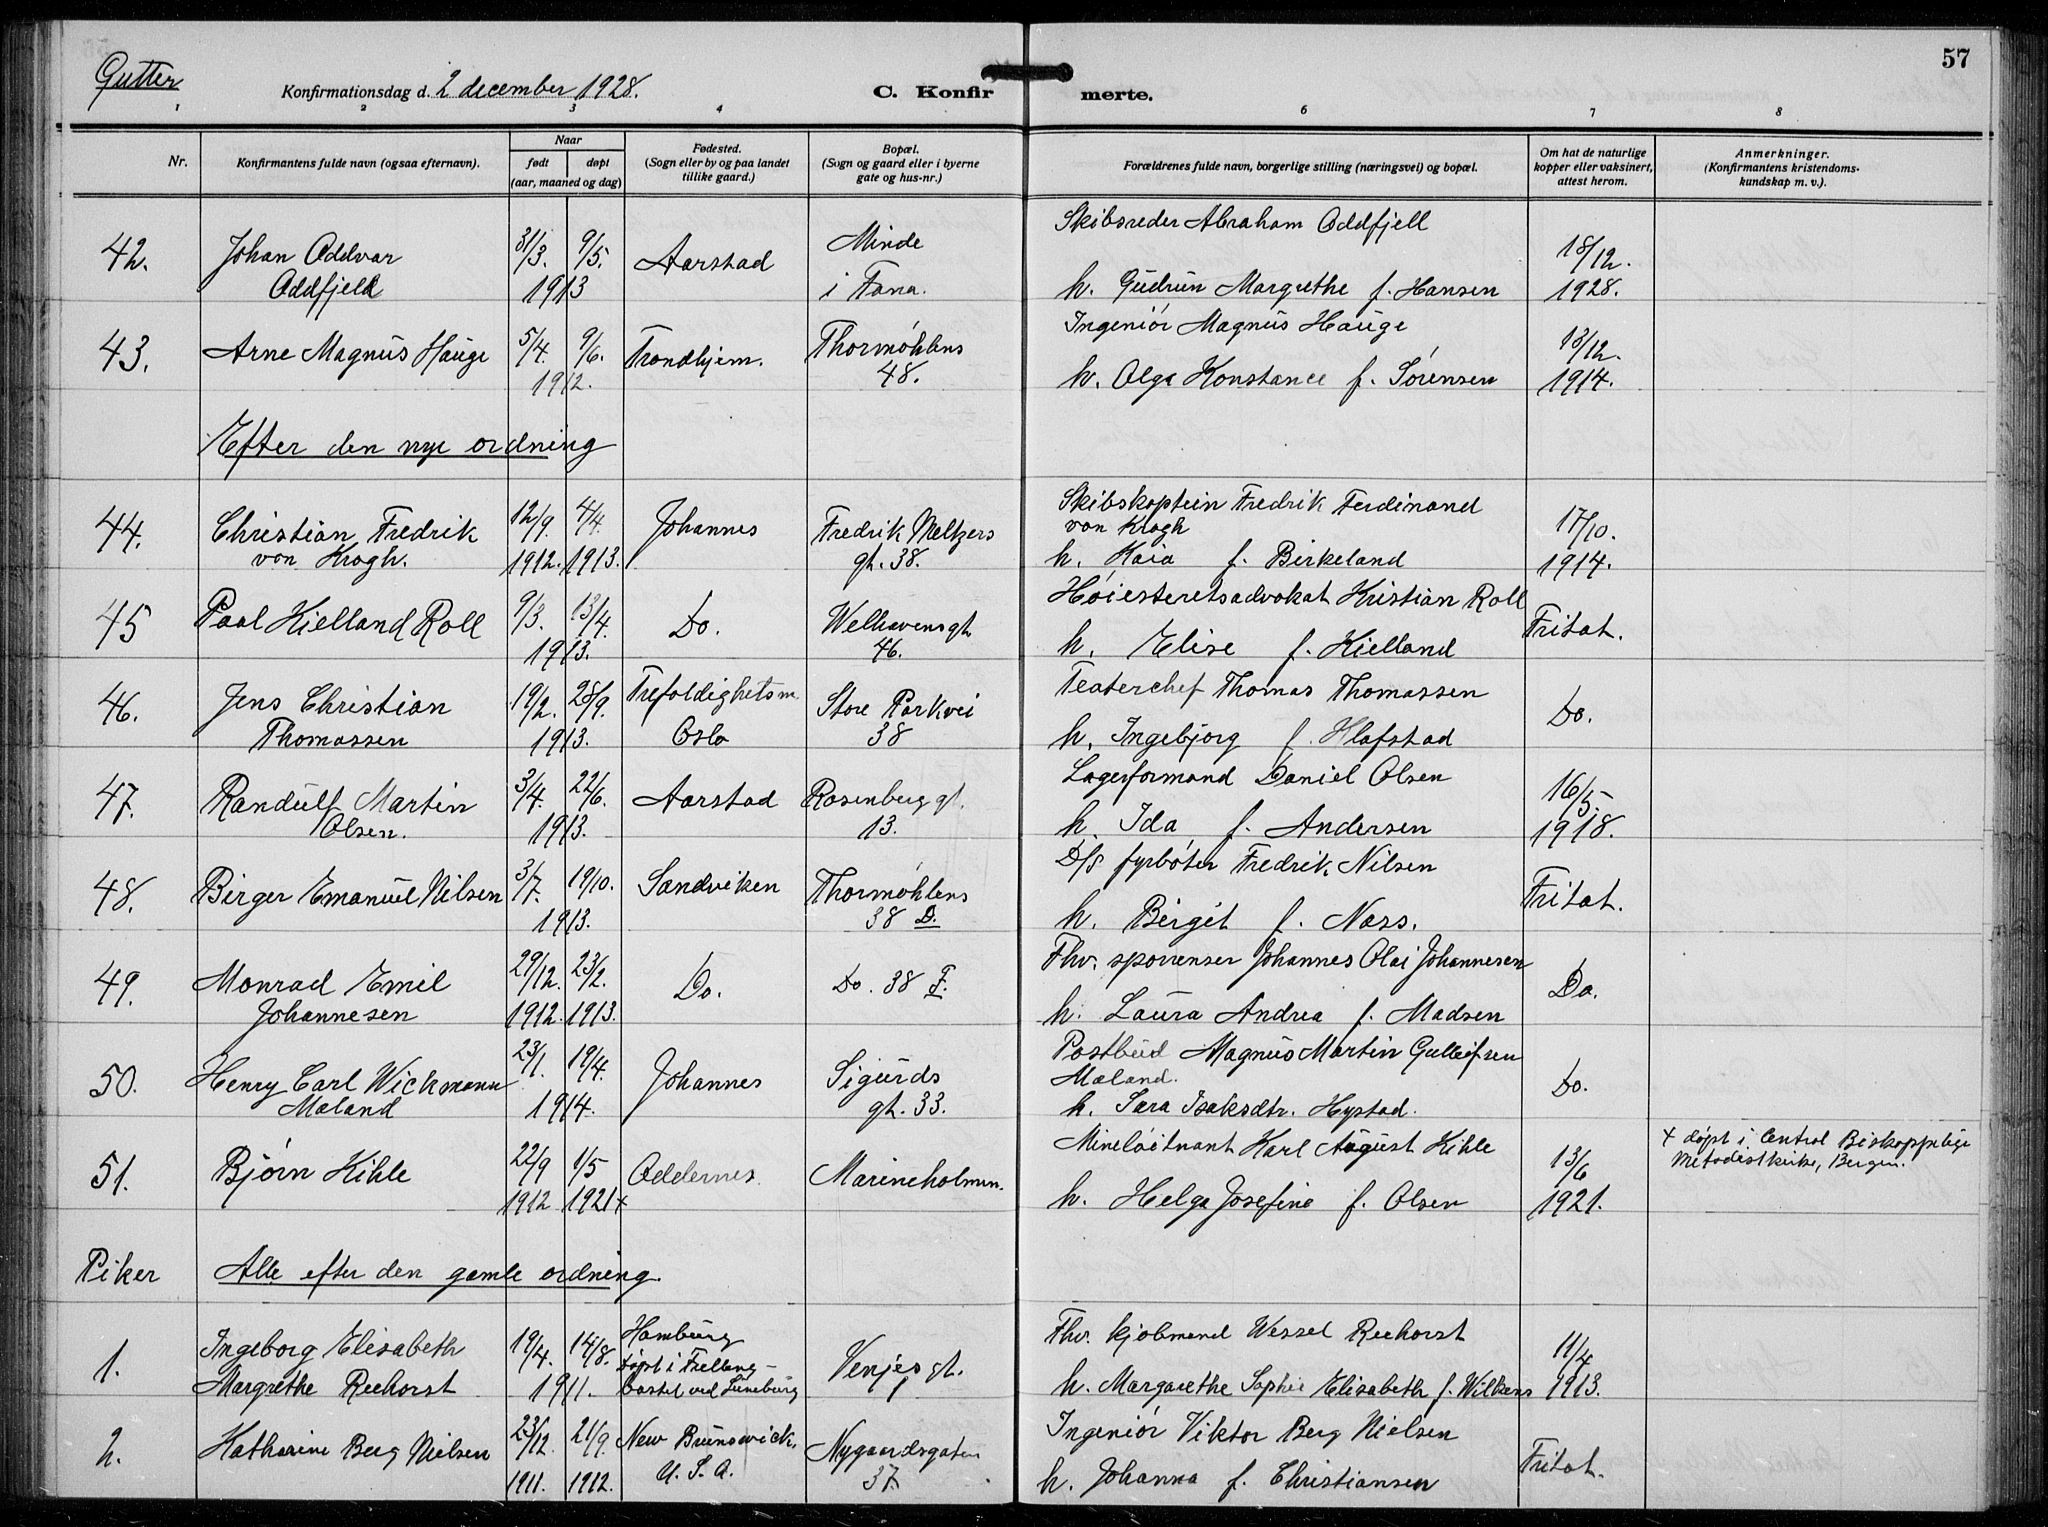 57
Gutter
Konfirmationsdag d. 2 december 1928.
C. Konfirmerte.
1 2 3 4 6 7 8
Nr.
Konfirmantens fulde navn (ogsaa efternavn).
Naar
født døpt
(aar, maaned og dag)
Fødested.
(Sogn eller by og paa landet
tillike gaard.)
Bopæl.
(Sogn og gaard eller i byerne
gate og hus-nr.)
Forældrenes fulde navn, borgerlige stilling (næringsvei) og bopæl.
Om hat de naturlige
kopper eller vaksinert,
attest herom.
Anmerkninger.
(Konfirmantens kristendoms-
kundskap m. v.).
42.
Johan Oddvar
Oddfjell
31/3. 9/5.
1913
Aarstad
Minde
i Fana.
Skibsreder Abraham Oddfjell
h. Gudrun Margrethe f. Hansen
18/12.
1928.
43.
Arne Magnus Hauge
5/4. 9/6.
1912.
Trondhjem.
Thormøhlens
48.
Ingeniør Magnus Hauge
h. Olga Konstance f. Sørensen
13/12.
1914.
Efter den nye ordning
44.
Christian Fredrik
von Krogh.
12/9 4/4.
1912. 1913.
Johannes
Fredrik Meltzers
gt. 38.
Skibskaptein Fredrik Ferdinand
von Krogh
h. Kaia f. Birkeland
17/10.
1914.
45
Paal Kielland Roll
9/3. 13/4.
1913.
Do.
Welhavensgt.
46.
Høiesteretsadvokat Kristian Roll
h. Elise f. Kielland
Fritat.
46.
Jens Christian
Thomassen
19/2. 28/9.
1913.
Trefoldighetsm.
Oslo
Store Parkvei
38
Teaterchef Thomas Thomassen
h. Ingebjorg f. Hlafstad
Do.
47.
Randulf Martin
Olsen.
3/4. 22/6.
1913.
Aarstad
Rosenberg gt.
13.
Lagerformand Daniel Olsen
h. Ida f. Andersen
16/5
1918.
48.
Birger Emanuel Nilsen
3/7. 19/10.
1913.
Sandviken
Thormøhlens
38 D.
D/S fyrbøter Fredrik Nilsen
h. Birgit f. Nass.
Fritat.
49.
Monrad Emil
Johannesen
29/12. 23/2.
1912. 1913.
Do.
Do. 38 F.
Fhv. sporrenser Johannes Olai Johannesen
h. Laura Andrea f. Madsen
Do.
50.
Henry Carl Wickmann
Mæland
23/1. 19/4.
1914.
Johannes
Sigurds
gt. 33.
Postbud Magnus Martin Gulleifsen
Mæland.
h. Sara Isaksdtr. Hystad.
Do.
51.
Bjørn Kihle
22/9 1/5
1912 1921 +
Oddernes.
Marineholmen.
Mineløitnant Karl August Kihle
h. Helga Josefine f. Olsen
13/6
1921.
+ døpt i Central Biskoppelige
Metodistkirke, Bergen.
Piker
Alle efter den gamle ordning.
1.
Ingeborg Elisabeth
Margrethe Reehorst
19/4. 14/8.
1911.
Hamburg
døpt i
ved Lüneburg
Venjes gt.
1
Fhv. kjøbmand Wessel Reehorst
h. Margarethe Sophie Elisabeth f. Wilkens
11/4
1913.
2.
Katharine Berg Nielsen
23/12. 21/9.
1911. 1912.
New Brunswick,
U. S. A.
Nygaardsgaten
37.
Ingeniør Viktor Berg Nielsen
h. Johanna f. Christiansen
Fritat.